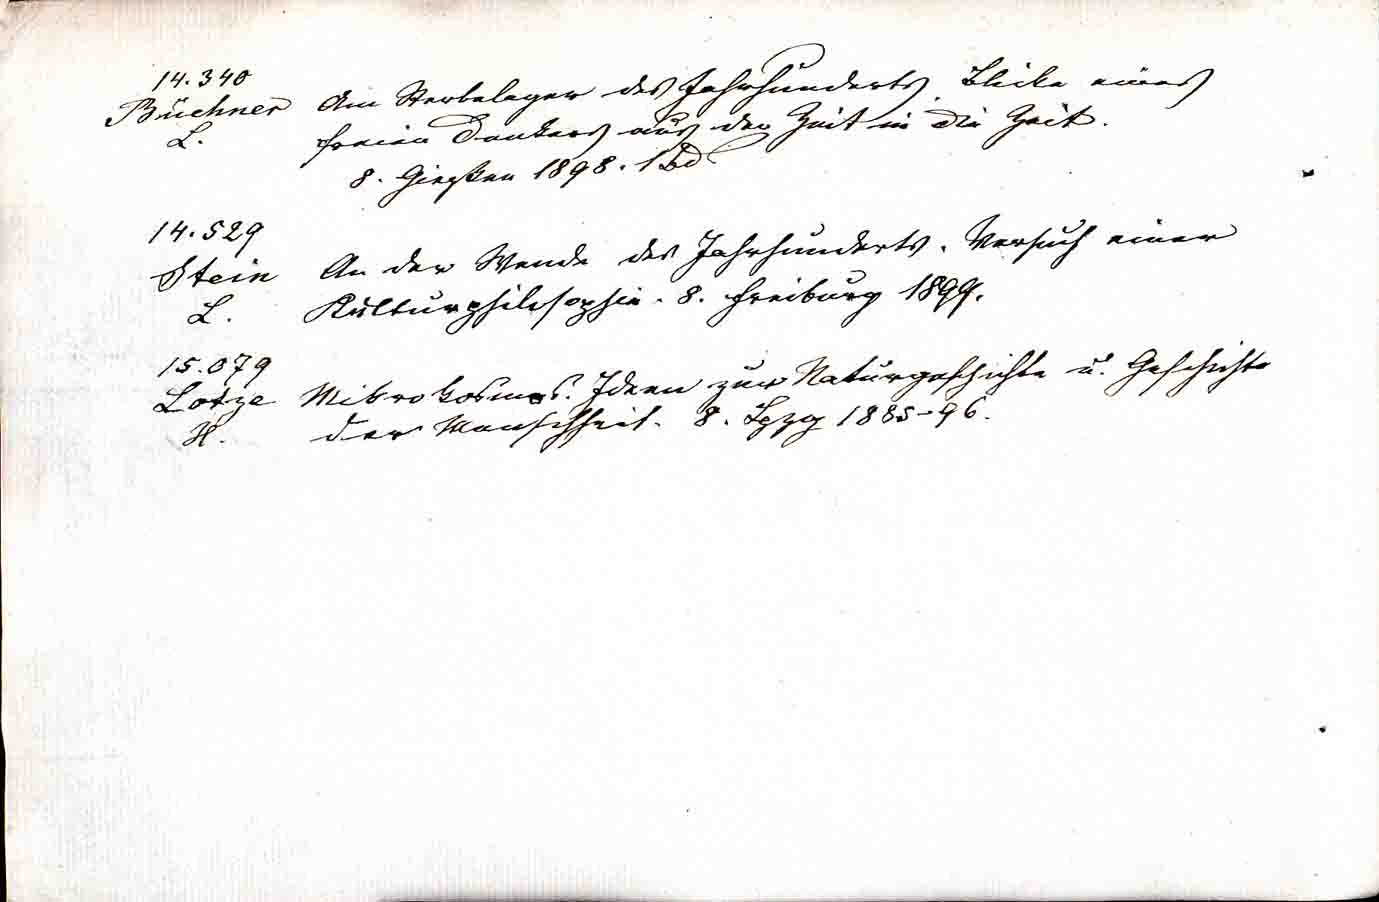 14.340
Büchner Am Sterbelager des Jahrhunderts. Blicke eines
L. freien Denkers aus der Zeit in die Zeit.
8. Gießen 1898. 1 Bd
14.529
Stein An der Wende des Jahrhunderts. Versuch einer
L. Kulturphilosophie. 8. Freiburg 1899.
15.079
Lotze Mikrokosmos. Ideen zur Naturgeschichte u. Geschichte
H. der Menschheit. 8. Lpzg 1885-96.